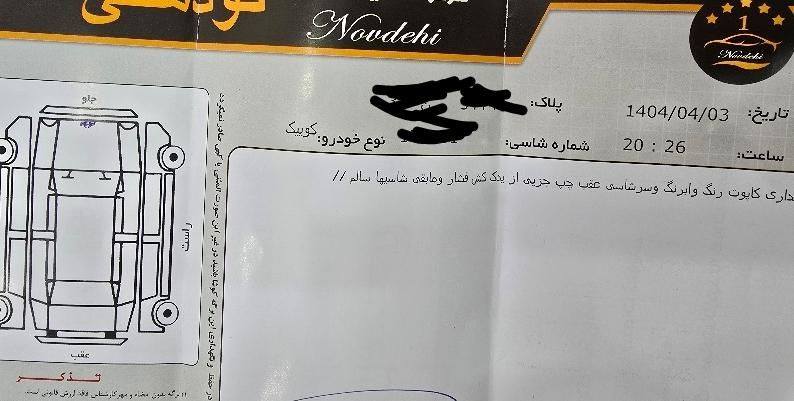 نودهی
Novdehi
1
Novdehi
تاریخ: 1404/04/03
پلاک:
ساعت: 20 : 26
شماره شاسی:
نوع خودرو: کوییک
مقداری کاپوت رنگ وابرنگ وسرشاسی عقب چپ جزیی از یدک کش فشار ومابقی شاسیها سالم //
جلو
راست
عقب
تذکر